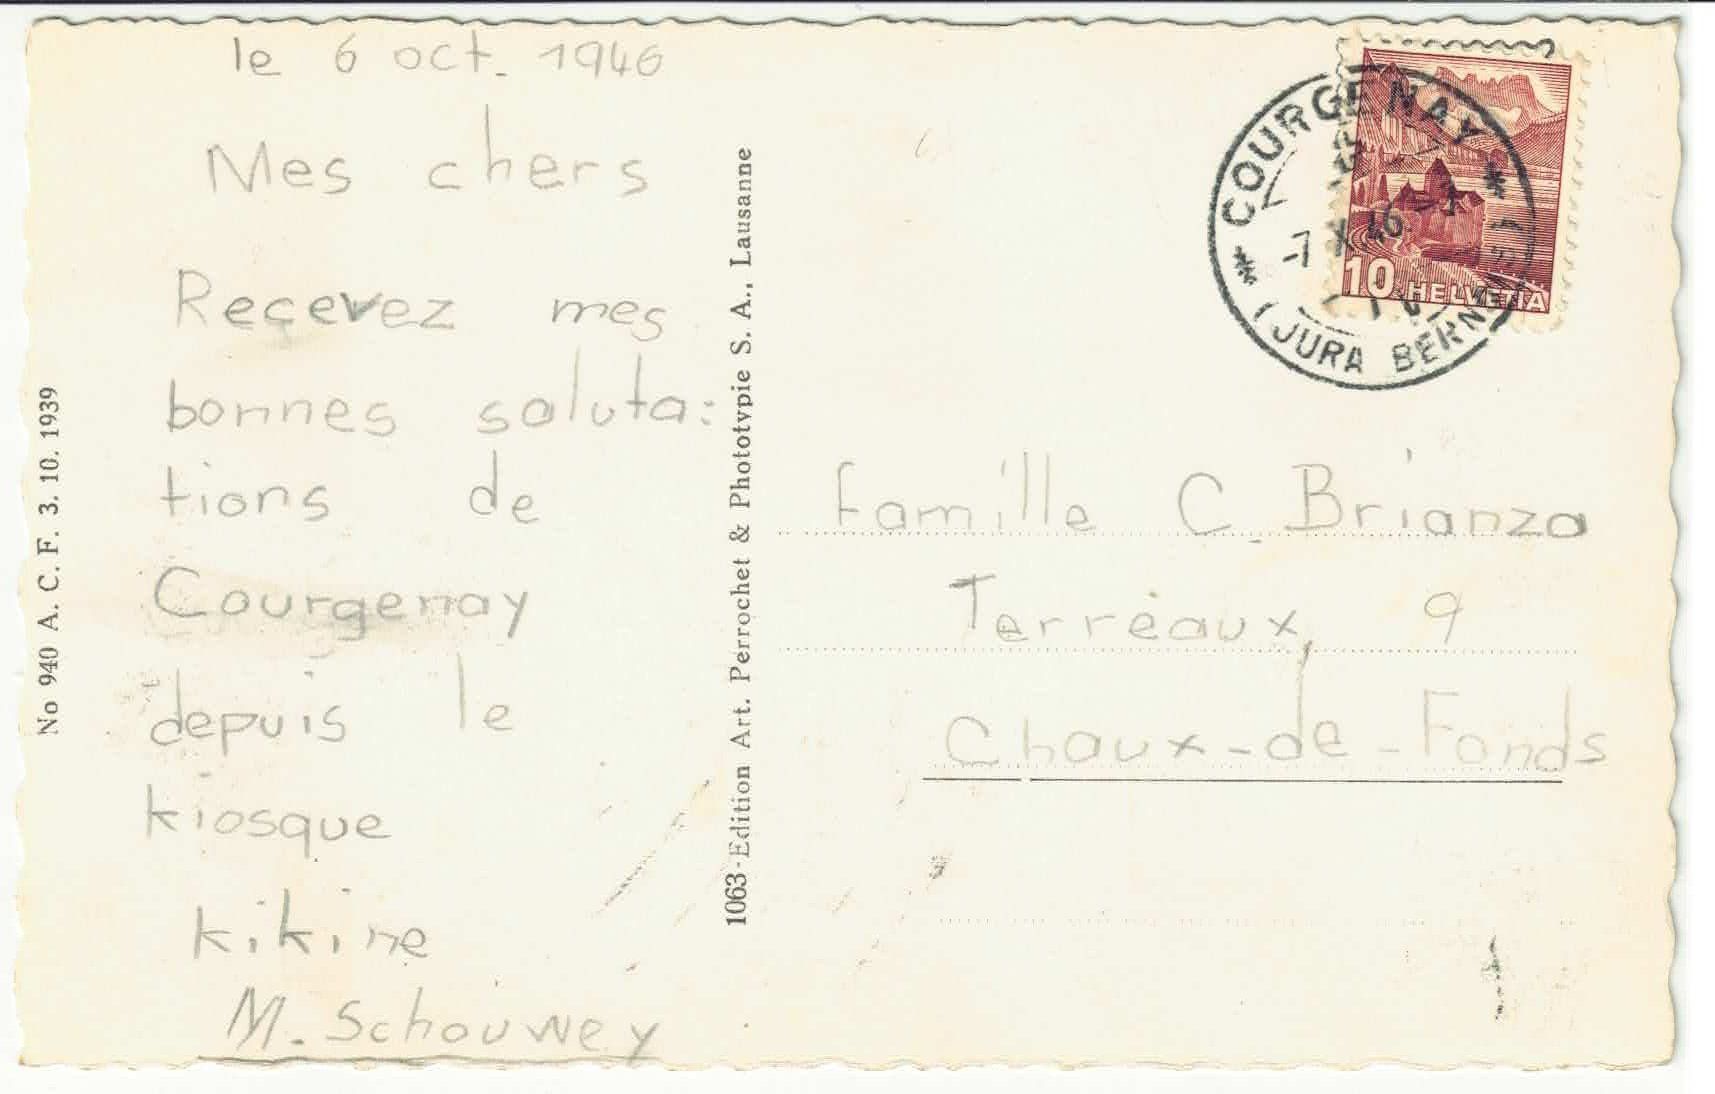 le 6 oct. 1946
Mes chers
Reçevez mes
bonnes saluta:
tions de
Courgenay
depuis le
kiosque
kikine
M. Schouwey
No 940 A. C. F. 3. 10. 1939
1063 - Edition Art. Perrochet & Phototypie S. A., Lausanne
COURGENAY
-7 X 46
(JURA BERN
10 HELVETIA
Famille C. Brianza
Terreaux, 9
Chaux-de-Fonds